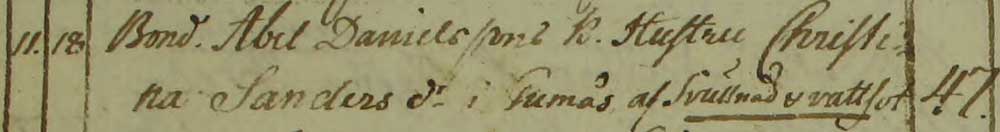 11. 18 Bond. Abel Danielssons k. Hustru Christi-
na Sanders dr i Tumås af Svullnad & vattsot 47.